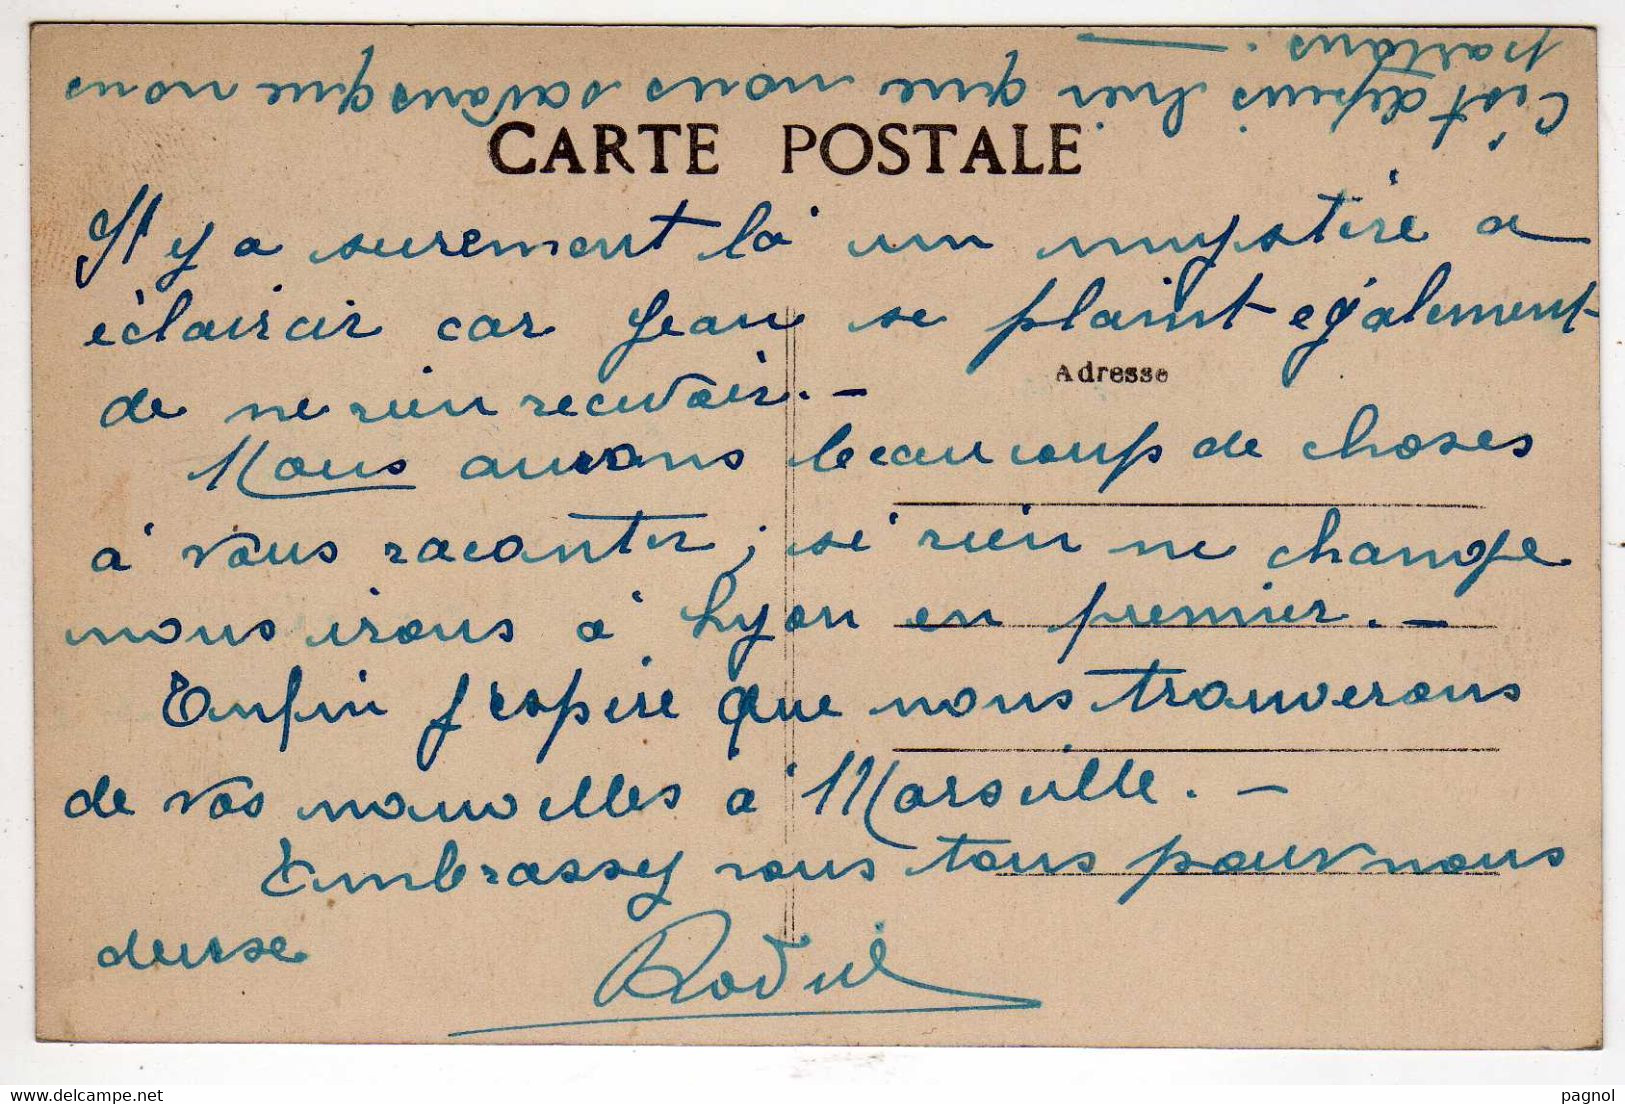 CARTE POSTALE
Il y a surement là un mystère a
éclaircir car Jean se plaint également
Adresse
de ne rien recevoir. —
Nous aurons beaucoup de choses
à vous raconter, si rien ne change
nous irons à Lyon en premier. —
Enfin j'espère que nous trouverons
de vos nouvelles à Marseille. —
Embrassez vous tous pour nous
deux
C'est depuis hier que nous savons que nous
partons. —
delcampe.net
pagnol